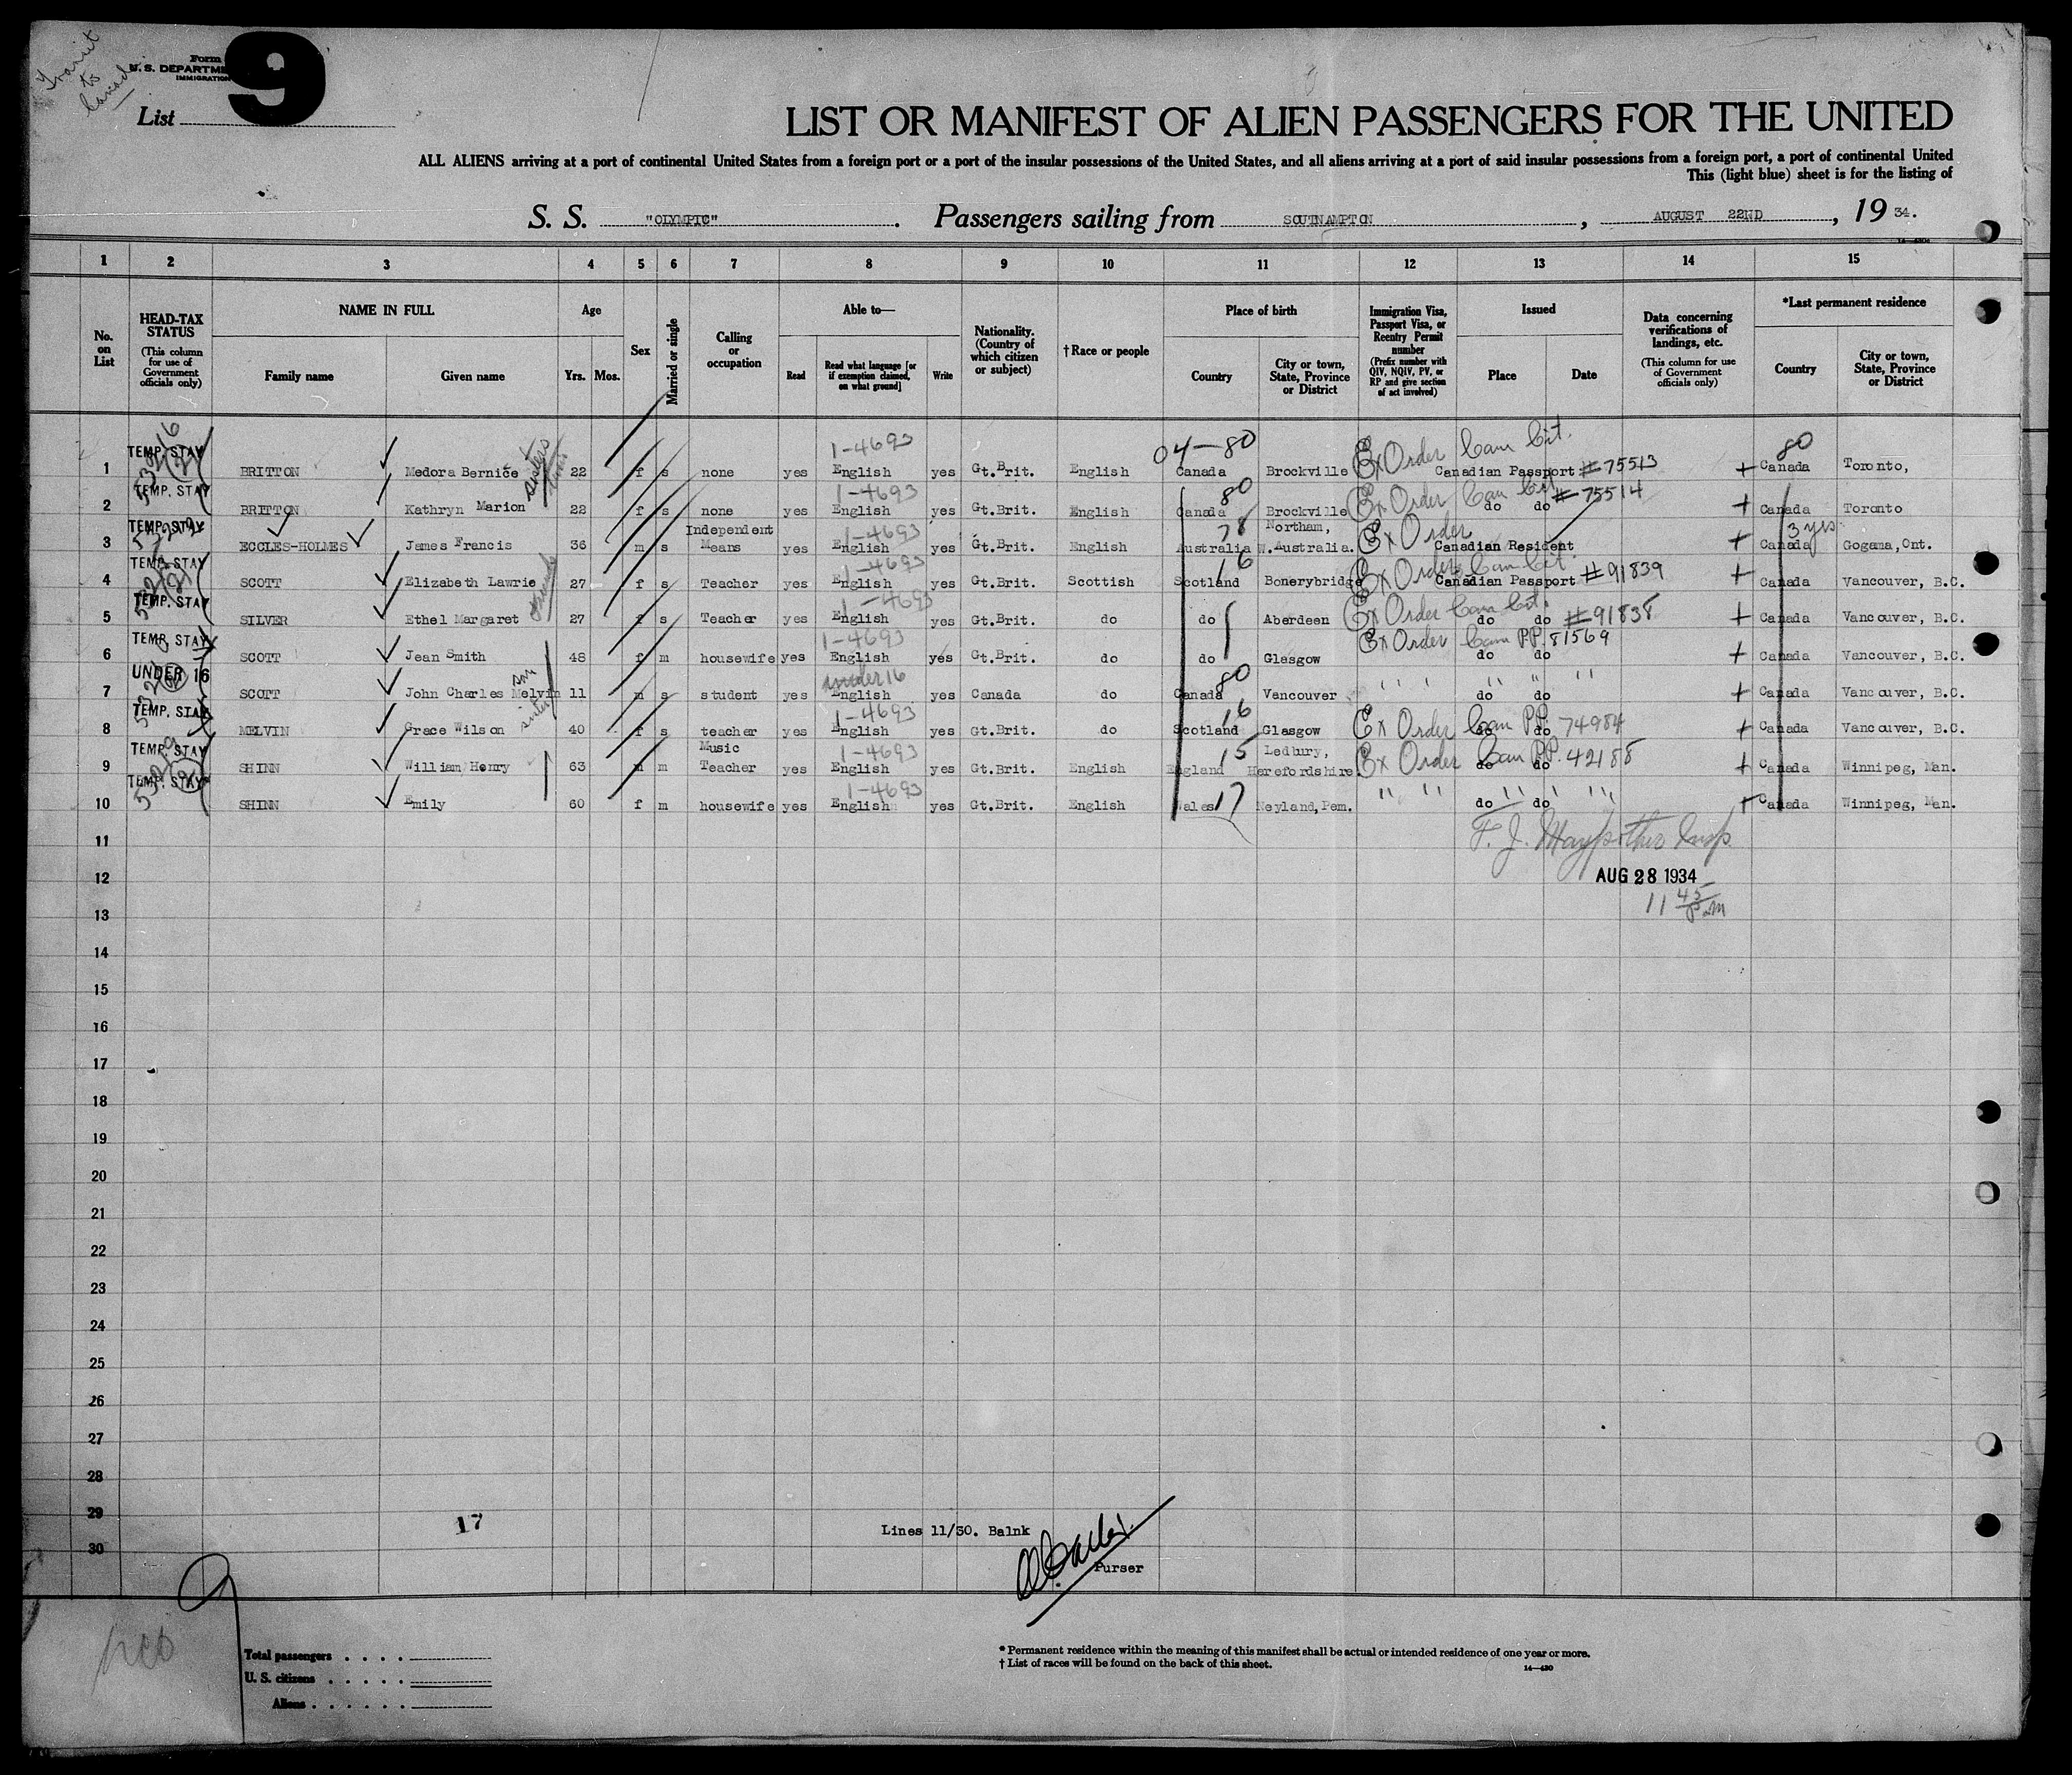 Transit
to
Canada
Form
U. S. DEPARTME
IMMIGRATION
9
List
LIST OR MANIFEST OF ALIEN PASSENGERS FOR THE UNITED
ALL ALIENS arriving at a port of continental United States from a foreign port or a port of the insular possessions of the United States, and all aliens arriving at a port of said insular possessions from a foreign port, a port of continental United
This (light blue) sheet is for the listing of
S. S. "OLYMPIC". Passengers sailing from SOUTHAMPTON, AUGUST 22ND, 19 34.
1 2 3 4 5 6 7 8 9 10 11 12 13 14 15
No. on List
HEAD-TAX STATUS (This column for use of Government officials only)
NAME IN FULL
Family name Given name
Age
Yrs. Mos.
Sex
Married or single
Calling or occupation
Able to—
Read Read what language [or if exemption claimed, on what ground] Write
Nationality. (Country of which citizen or subject)
†Race or people
Place of birth
Country City or town, State, Province or District
Immigration Visa, Passport Visa, or Reentry Permit number (Prefix number with QIV, NQIV, PV, or RP and give section of act involved)
Issued
Place Date
Data concerning verifications of landings, etc. (This column for use of Government officials only)
*Last permanent residence
Country City or town, State, Province or District
TEMP. STAY 1-4693 04-80 Ex Order Can Cit. 80
1 BRITTON Medora Bernice sisters 22 f s none yes English yes Gt.Brit. English Canada Brockville Canadian Passport #75513 + Canada Toronto,
TEMP. STAY 1-4693 80 Ex Order Can Cit #75514
2 BRITTON Kathryn Marion 22 f s none yes English yes Gt.Brit. English Canada Brockville do do + Canada Toronto
TEMP. STAY Independent 1-4693 78 Northam, Ex Order 3 yrs
3 ECCLES-HOLMES James Francis 36 m s Means yes English yes Gt.Brit. English Australia W.Australia. Canadian Resident + Canada Gogama,Ont.
TEMP. STAY 1-4693 16 Ex Order Can Cit.
4 SCOTT Elizabeth Lawrie 27 f s Teacher yes English yes Gt.Brit. Scottish Scotland Bonerybridge Canadian Passport #91839 + Canada Vancouver, B.C.
TEMP. STAY friends 1-4693 Ex Order Can Cit.
5 SILVER Ethel Margaret 27 f s Teacher yes English yes Gt.Brit. do do Aberdeen do do #91838 + Canada Vancouver, B.C.
TEMP. STAY 1-4693 Ex Order Can PP. 81569
6 SCOTT Jean Smith 48 f m housewife yes English yes Gt.Brit. do do Glasgow do do + Canada Vancouver, B.C.
UNDER 16 son under 16 80 " " " " "
7 SCOTT John Charles Melvin 11 m s student yes English yes Canada do Canada Vancouver do do + Canada Vancouver, B.C.
TEMP. STAY sister 1-4693 16 Ex Order Can PP. 74984
8 MELVIN Grace Wilson 40 f s teacher yes English yes Gt.Brit. do Scotland Glasgow do do + Canada Vancouver, B.C.
TEMP. STAY Music 1-4693 15 Ledbury, Ex Order Can PP. 42188
9 SHINN William Henry 63 m m Teacher yes English yes Gt.Brit. English England Herefordshire do do + Canada Winnipeg, Man.
TEMP. STAY 1-4693 17 " " " " "
10 SHINN Emily 60 f m housewife yes English yes Gt.Brit. English Wales Neyland,Pem. do do Canada Winnipeg, Man.
11
12 AUG 28 1934
13 11 45 am
14
15
16
17
18
19
20
21
22
23
24
25
26
27
28
29 17 Lines 11/30. Balnk
30 Purser
Total passengers
U. S. citizens
Aliens
* Permanent residence within the meaning of this manifest shall be actual or intended residence of one year or more.
† List of races will be found on the back of this sheet.
14—430